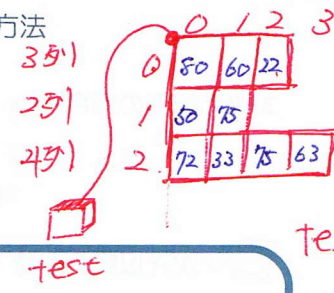 方法
0 1 2 3
3列 0 80 60 22
2列 1 50 75
4列 2 72 33 75 63
test
te